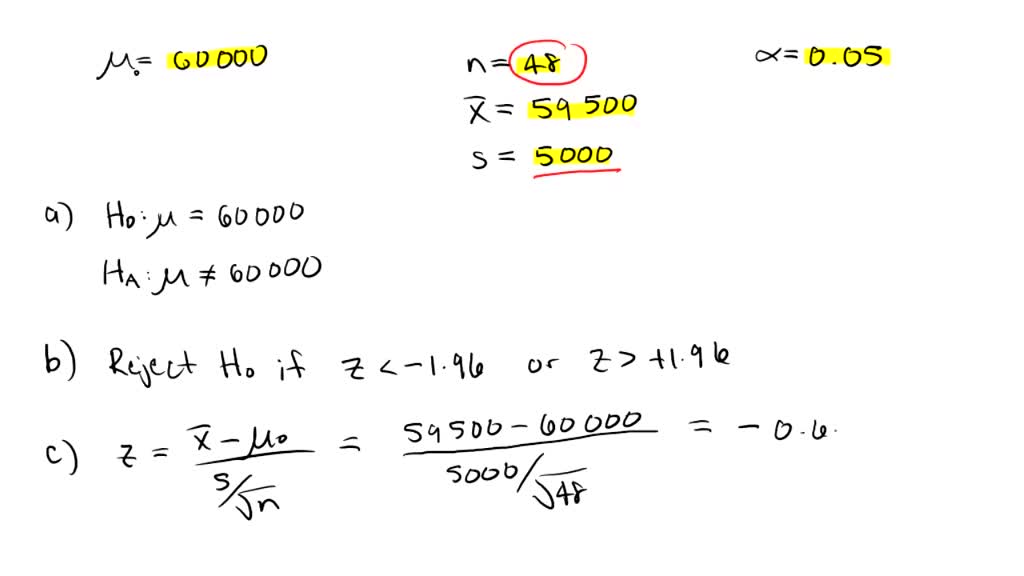 μ₀ = 60000 n = 48 α = 0.05
x̄ = 59500
s = 5000
a) H₀: μ = 60000
Hᴀ: μ ≠ 60000
b) Reject H₀ if z < -1.96 or z > +1.96
c) z = (x̄ - μ₀)/(s/√n) = (59500 - 60000)/(5000/√48) = -0.6